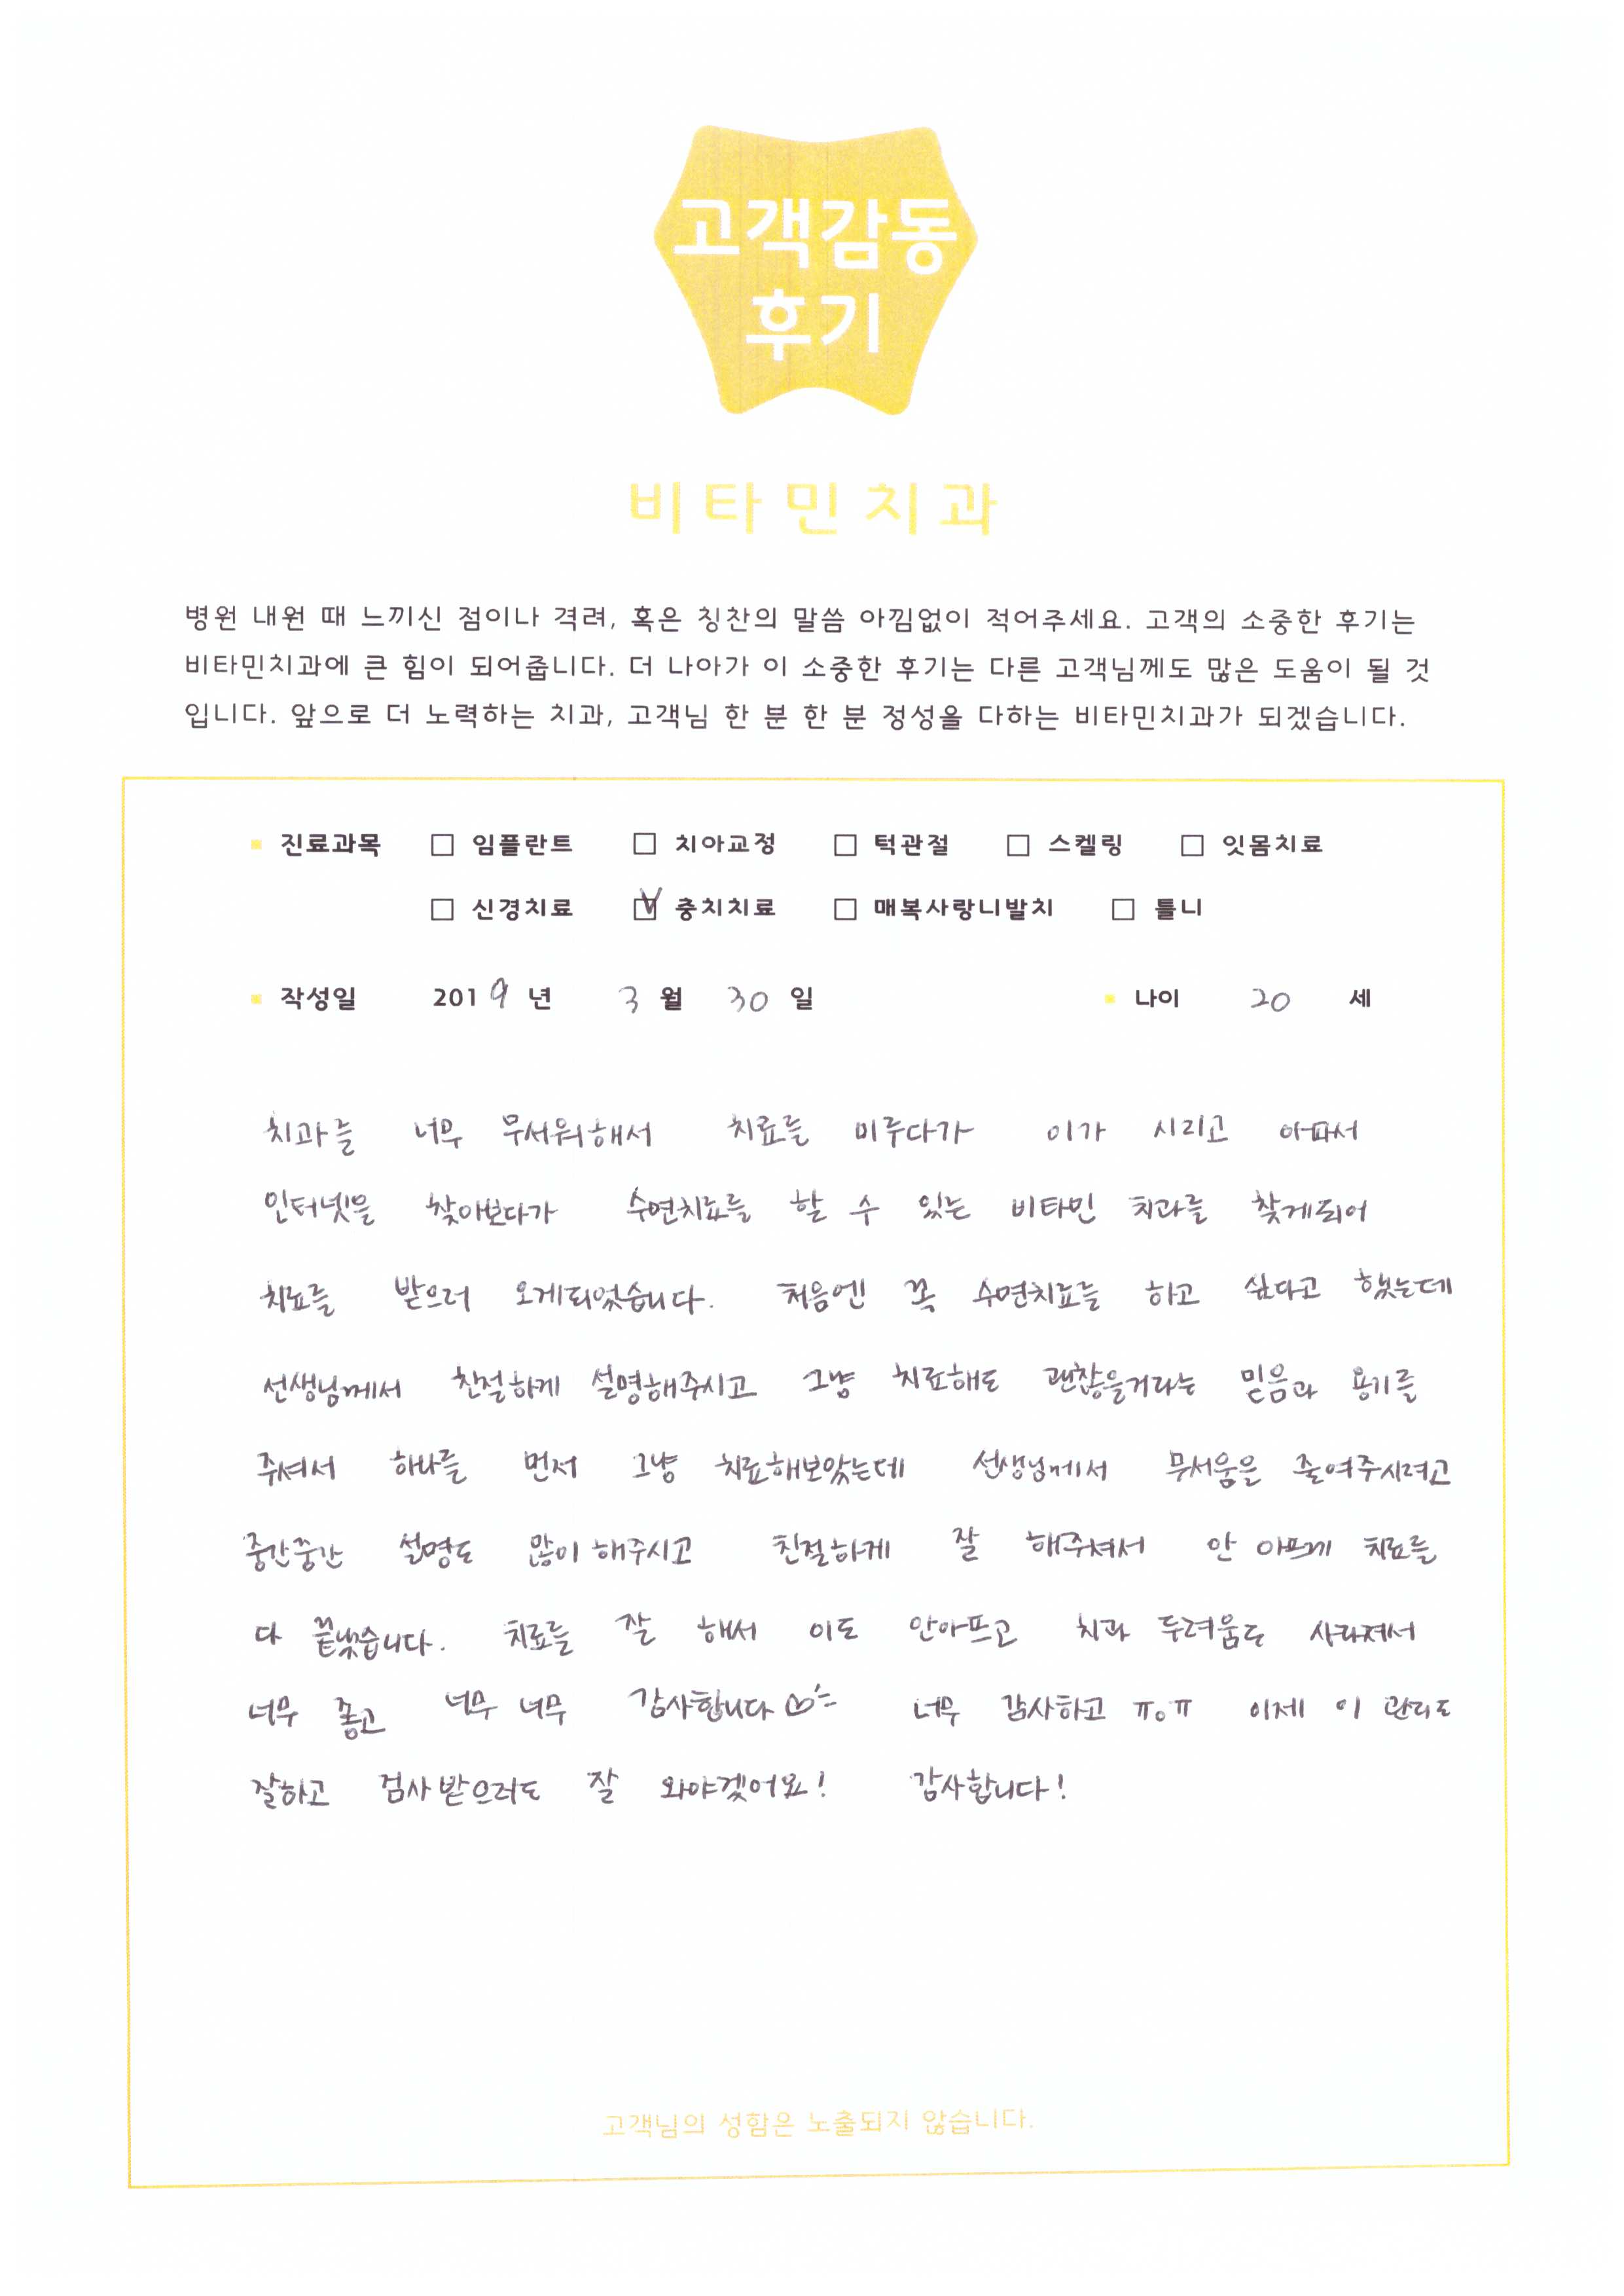 고객감동
후기
비타민치과
병원 내원 때 느끼신 점이나 격려, 혹은 칭찬의 말씀 아낌없이 적어주세요. 고객의 소중한 후기는
비타민치과에 큰 힘이 되어줍니다. 더 나아가 이 소중한 후기는 다른 고객님께도 많은 도움이 될 것
입니다. 앞으로 더 노력하는 치과, 고객님 한 분 한 분 정성을 다하는 비타민치과가 되겠습니다.
진료과목 □ 임플란트 □ 치아교정 □ 턱관절 □ 스켈링 □ 잇몸치료
□ 신경치료 ☑ 충치치료 □ 매복사랑니발치 □ 틀니
작성일 2019 년 3 월 30 일 나이 20 세
치과를 너무 무서워해서 치료를 미루다가 이가 시리고 아파서
인터넷을 찾아보다가 수면치료를 할 수 있는 비타민 치과를 찾게되어
치료를 받으러 오게되었습니다. 처음엔 꼭 수면치료를 하고 싶다고 했는데
선생님께서 친절하게 설명해주시고 그냥 치료해도 괜찮을거라는 믿음과 용기를
주셔서 하나를 먼저 그냥 치료해보았는데 선생님께서 무서움을 줄여주시려고
중간중간 설명도 많이 해주시고 친절하게 잘 해주셔서 안 아프게 치료를
다 끝냈습니다. 치료를 잘 해서 이도 안아프고 치과 두려움도 사라져서
너무 좋고 너무 너무 감사합니다 너무 감사하고 ㅠoㅠ 이제 이 관리도
잘하고 검사받으러도 잘 와야겠어요! 감사합니다!
고객님의 성함은 노출되지 않습니다.